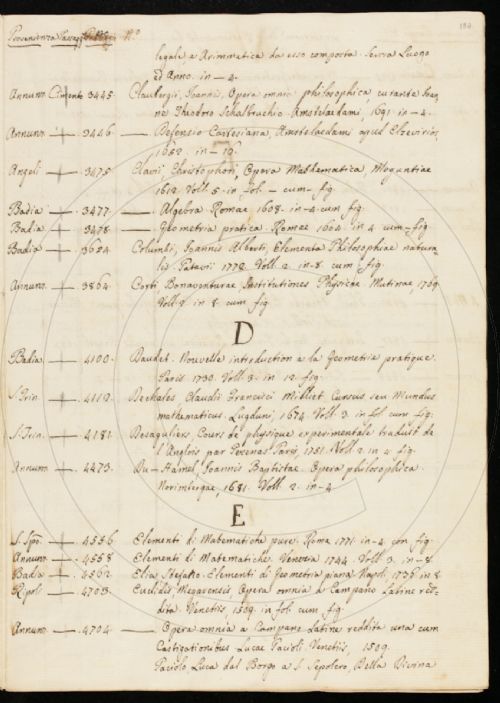 Provenienza Passag. N.º 184.
legale, e Arimmatica da esso composta. Senza Luogo
ed Anno. in-4.
Annunz. Cimento 3445. Claubergii, Joannis, Opera omnia philosophica, curante Joan-
ne Theodoro Schalbruchio. Amstelaedami, 1691. in-4.
Annunz. 3446. — Defensio Cartesiana, Amstelaedami apud Elzevirios
1652. in-16.
Angeli 3475. Clavii, Christophori, Opera Mathematica, Moguntiae
1612. Voll. 5. in fol. cum fig.
Badia 3477. — Algebra. Romae, 1608. in-4. cum fig.
Badia 3478. — Geometria pratica. Romae 1604. in 4. cum fig.
Badia 3654. Columbi, Joannis Alberti, Elementa Philosophiae natura-
lis. Patavii. 1772. Voll. 2. in-8. cum fig.
Annunz. 3864. Corti Bonaventurae Institutiones Physicae. Mutinae, 1769.
Voll. 2. in 8. cum fig.
D
Badia 4100. Daudet. Nouvelle introduction a la Geometrie pratique.
Paris. 1730. Voll. 3. in 12. fig.
S. Trin. 4112. Dechales Claudii Francisci Milliet Cursus seu Mundus
mathematicus. Lugduni, 1674. Voll. 3. in fol. cum fig.
S. Trin. 4181. Desaguliers, Cours de physique experimentale traduit de
l'Anglois par Pezenas. Paris, 1751. Voll. 2. in 4. fig.
Annunz. 4473. Du-Hamel, Joannis Baptistae. Opera philosophica.
Norimbergae, 1681. Voll. 2. in-4.
E
S. Spo. 4556. Elementi di Matematiche pure. Roma 1771. in-4. con fig.
Annunz. 4558. Elementi di Matematiche. Venezia 1744. Voll. 3. in-8.
Badia 4562. Elia Stefano. Elementi di Geometria piana. Napoli. 1736. in 8.
Ripoli 4703. Euclidis Megarensis, Opera omnia a Campano Latine red-
dita. Venetiis 1509. in fol. cum fig.
Annunz. 4704. — Opera omnia a Campano Latine reddita una cum
Castigationibus Lucae Pacioli. Venetiis, 1509.
Paciolo, Luca dal Borgo a S. Sepolcro, Della Divina